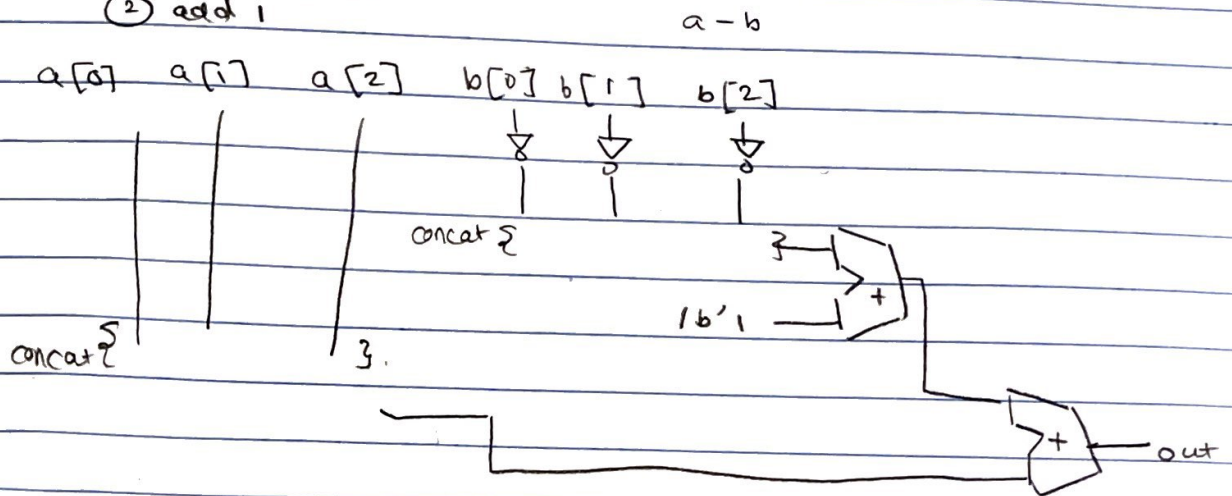 ② add 1
a - b
a[0] a[1] a[2] b[0] b[1] b[2]
concat { }
+
1b'1
concat { }.
+
out